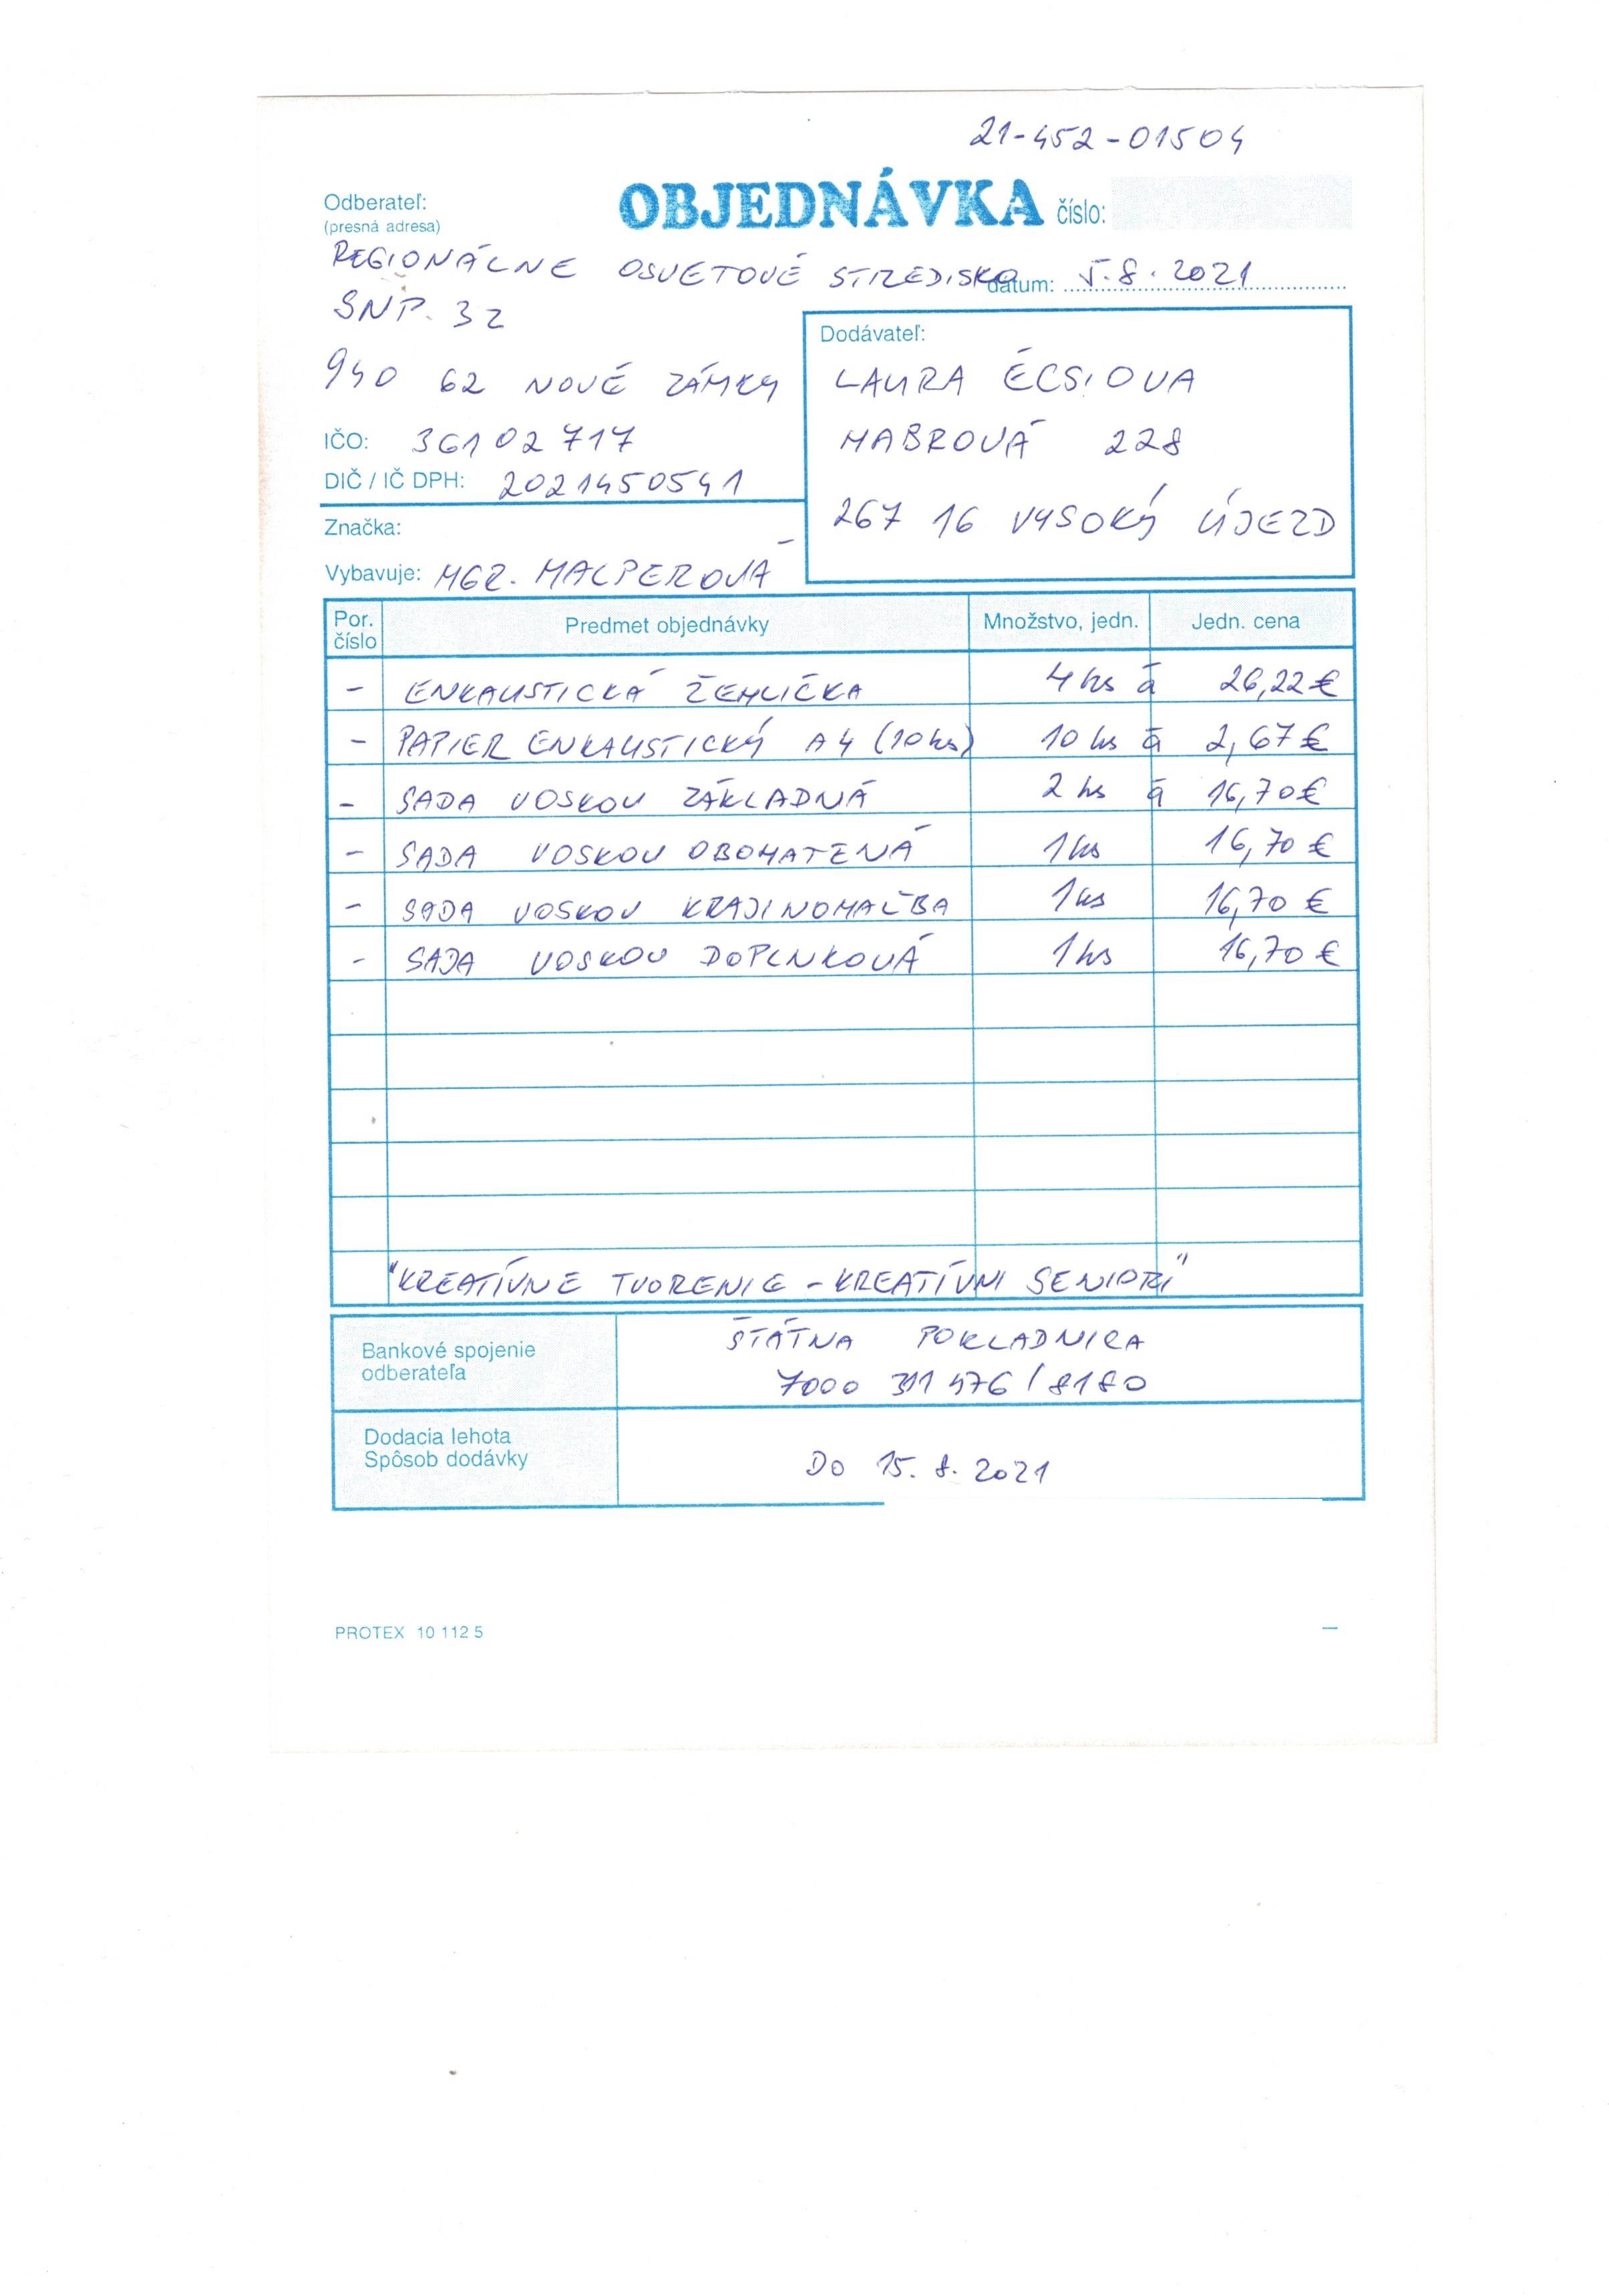 21-452-01504
Odberateľ:
(presná adresa)
OBJEDNÁVKA číslo:
REGIONÁLNE OSVETOVÉ STREDISKO
dátum: 5.8.2021
SNP 32
940 62 NOVÉ ZÁMKY
IČO: 36102717
DIČ / IČ DPH: 2021450541
Značka:
Vybavuje: MGR. MALPEROVÁ
Dodávateľ:
LAURA ÉCSIOVA
HABROVÁ 228
267 16 VYSOKÝ ÚJEZD
Por. číslo Predmet objednávky Množstvo, jedn. Jedn. cena
- ENKAUSTICKÁ ŽEHLIČKA 4 ks á 26,22 €
- PAPIER ENKAUSTICKÝ A4 (10 ks) 10 ks á 2,67 €
- SADA VOSKOV ZÁKLADNÁ 2 ks á 16,70 €
- SADA VOSKOV OBOHATENÁ 1 ks 16,70 €
- SADA VOSKOV KRAJINOMAĽBA 1 ks 16,70 €
- SADA VOSKOV DOPLNKOVÁ 1 ks 16,70 €
"KREATÍVNE TVORENIE - KREATÍVNI SENIORI"
Bankové spojenie
odberateľa
ŠTÁTNA POKLADNICA
7000 311 476 / 8180
Dodacia lehota
Spôsob dodávky
DO 15. 8. 2021
PROTEX 10 112 5